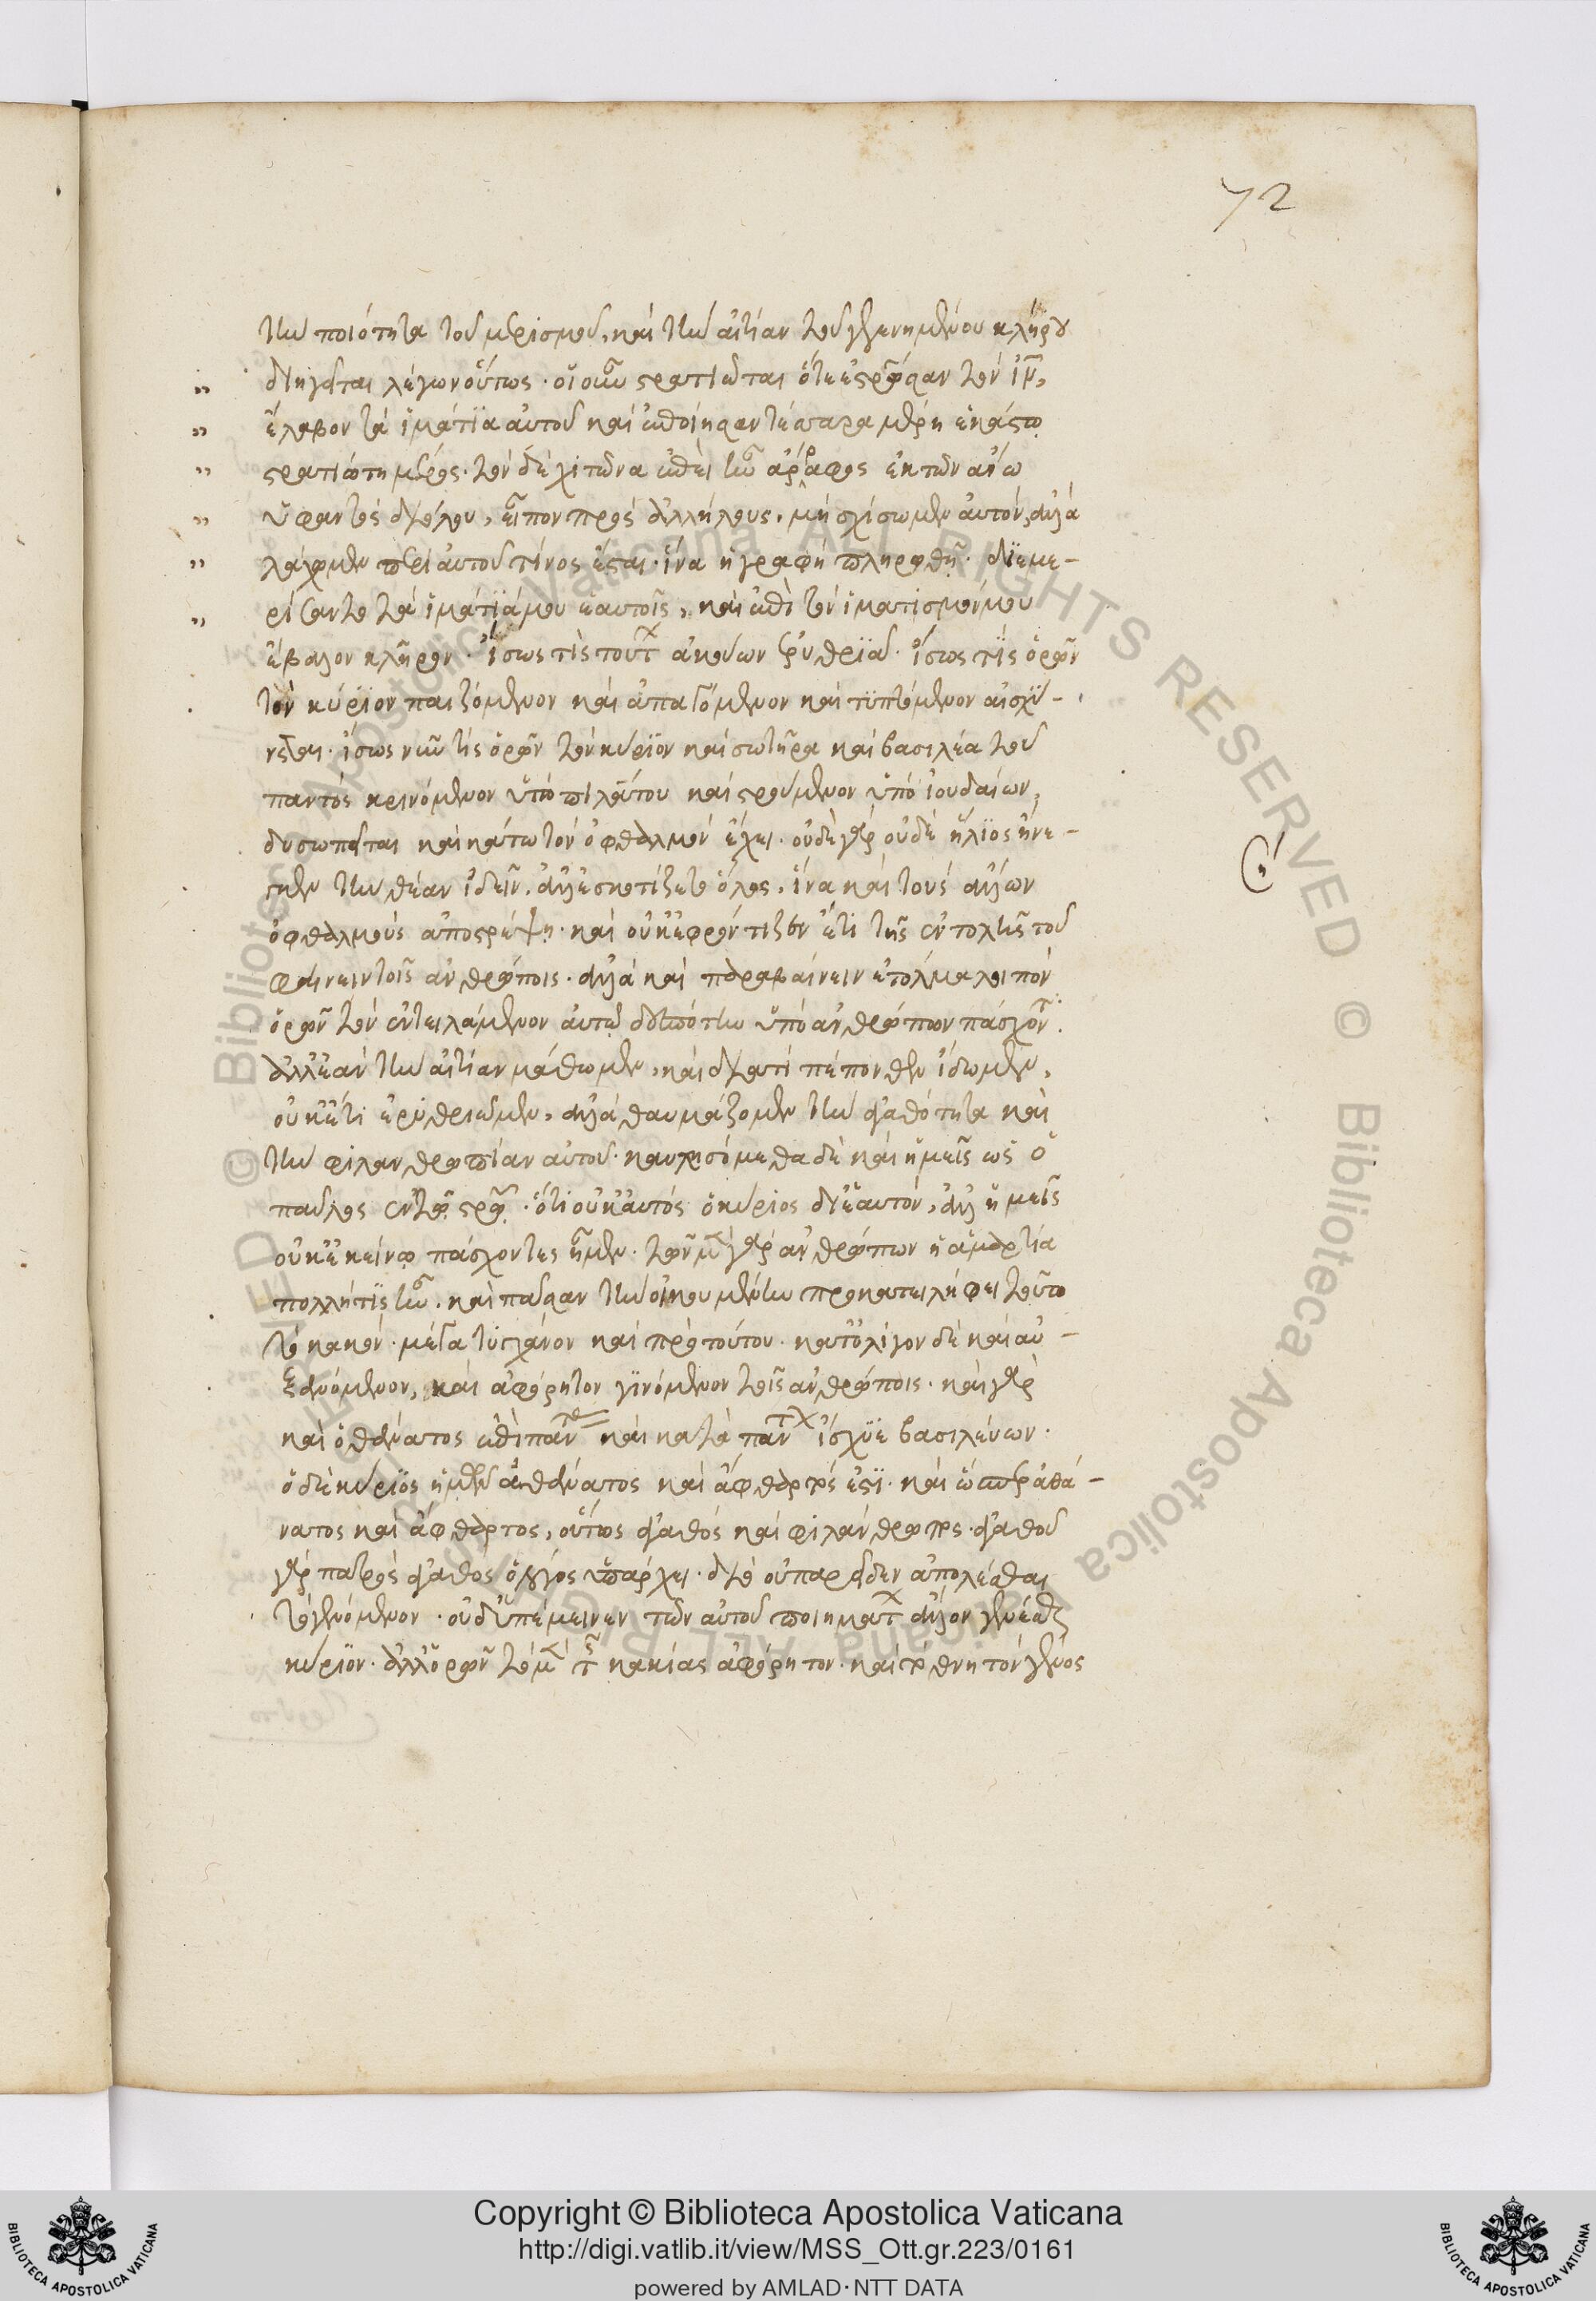 72
τὴν ποιότητα τοῦ μερισμοῦ, καὶ τὴν αἰτίαν τοῦ γεγενημένου κλήρου
διηγεῖται λέγων οὕτως· οἱ οὖν στρατιῶται ὅτε ἐσταύρωσαν τὸν ἰν,
ἔλαβον τὰ ἱμάτια αὐτοῦ καὶ ἐποίησαν τέσσαρα μέρη ἑκάστῳ
στρατιώτῃ μέρος· τὸν δὲ χιτῶνα ἐπεὶ ἦν ἄρραφος ἐκ τῶν ἄνω
ὑφαντὸς δι' ὅλου, εἶπον πρὸς ἀλλήλους, μὴ σχίσωμεν αὐτόν, ἀλλὰ
λάχωμεν περὶ αὐτοῦ τίνος ἔσται· ἵνα ἡ γραφὴ πληρωθῇ· διεμε-
ρίσαντο τὰ ἱμάτιά μου ἑαυτοῖς, καὶ ἐπὶ τὸν ἱματισμόν μου
ἔβαλον κλῆρον· ἴσως τὶς τούτων ἀκούων ἐρυθριᾷ· ἴσως τὶς ὁρῶν
τὸν κύριον παιζόμενον καὶ ἀπαγόμενον καὶ τυπτόμενον αἰσχύ-
νεται· ἴσως νῦν τὶς ὁρῶν τὸν κύριον καὶ σωτῆρα καὶ βασιλέα τοῦ
παντὸς κρινόμενον ὑπὸ πιλάτου καὶ σταυρούμενον ὑπὸ ἰουδαίων,
δυσωπεῖται καὶ κάτω τὸν ὀφθαλμὸν ἔχει· οὐδὲ γὰρ οὐδὲ ἥλιος ἤνε-
γκεν τὴν θέαν ἰδεῖν, ἀλλ' ἐσκοτίζετο ὅλος, ἵνα καὶ τοὺς ἄλλων
ὀφθαλμοὺς ἀποστρέψῃ· καὶ οὐκ ἐφρόντιζεν ἔτι τῆς ἐντολῆς τοῦ
φαίνειν τοῖς ἀνθρώποις· ἀλλὰ καὶ παραβαίνειν ἐτόλμα λοιπὸν
ὁρῶν τὸν ἐντειλάμενον αὐτῷ δεσπότην ὑπὸ ἀνθρώπων πάσχοντα·
ἀλλ' ἐὰν τὴν αἰτίαν μάθωμεν, καὶ διατί πέπονθεν ἴδωμεν,
οὐκέτι ἐρυθριῶμεν, ἀλλὰ θαυμάζομεν τὴν ἀγαθότητα καὶ
τὴν φιλανθρωπίαν αὐτοῦ· καυχησόμεθα δὲ καὶ ἡμεῖς ὡς ὁ
παῦλος ἐν τῷ σταυρῷ· ὅτι οὐκ αὐτὸς ὁ κύριος δι' ἑαυτόν, ἀλλ' ἡμεῖς
οὐκ ἐκείνῳ πάσχοντες ἦμεν· τῶν μὲν γὰρ ἀνθρώπων ἡ ἁμαρτία
πολλή τις ἦν· καὶ πᾶσαν τὴν οἰκουμένην προκατειλήφει τοῦτο
τὸ κακόν· μέγα τυγχάνον καὶ πρὸ τούτου· κατ' ὀλίγον δὲ καὶ αὐ-
ξανόμενον, καὶ ἀφόρητον γινόμενον τοῖς ἀνθρώποις· καὶ γὰρ
καὶ ὁ θάνατος ἐπὶ πάντας καὶ κατὰ πάντων ἴσχυε βασιλεύων·
ὁ δὲ κύριος ἡμῶν ἀθάνατος καὶ ἄφθαρτός ἐστι· καὶ ὥσπερ ἀθά-
νατος καὶ ἄφθαρτος, οὕτως ἀγαθὸς καὶ φιλάνθρωπος· ἀγαθοῦ
γὰρ πατρὸς ἀγαθὸς ὁ λόγος ὑπάρχει· διὸ οὐ παρεῖδεν ἀπολέσθαι
τὸ γενόμενον· οὐδ' ὑπέμεινεν τῶν αὐτοῦ ποιημάτων ἄλλον γενέσθαι
κύριον· ἀλλ' ὁρῶν τὸ μὲν τῆς κακίας ἀφόρητον· καὶ τὸ θνητὸν γένος